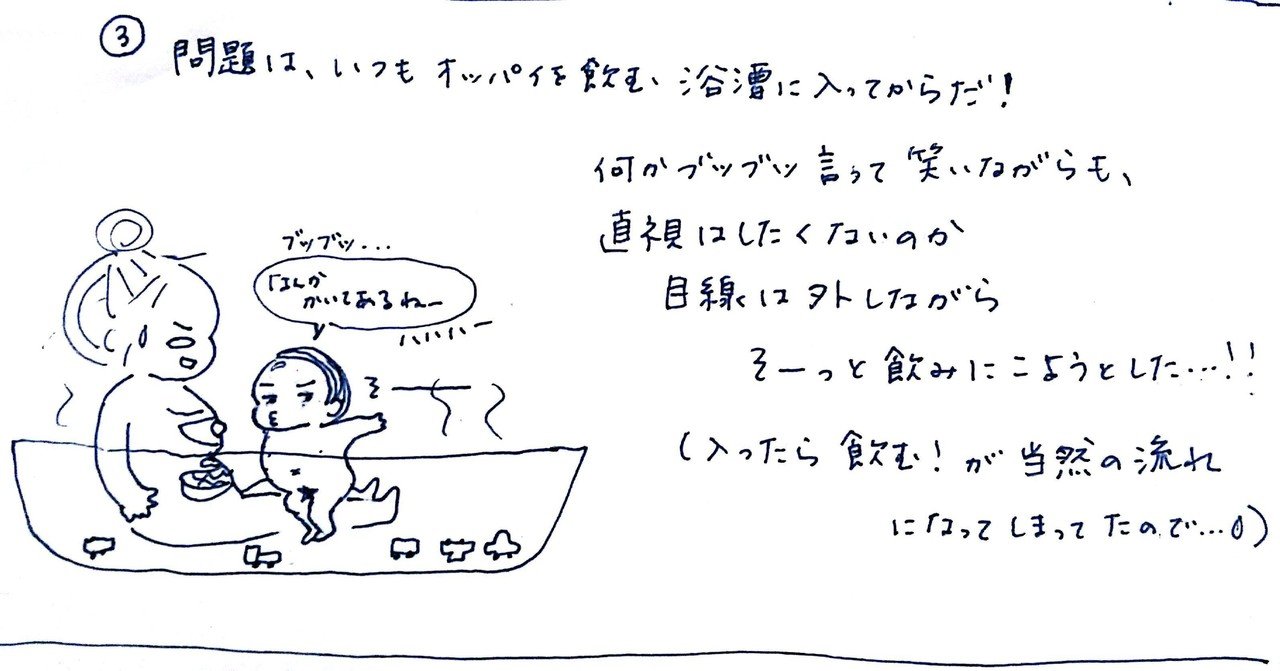 ③
問題は、いつもオッパイを飲む、浴漕に入ってからだ!
何かブッブッ言って笑いながらも、
直視はしたくないのか
目線は外しながら
そーっと飲みにこようとした…!!
(入ったら飲む!が当然の流れ
になってしまってたので…)
ブッブッ...
なんか
かいてあるねー
ハハハハー
そー